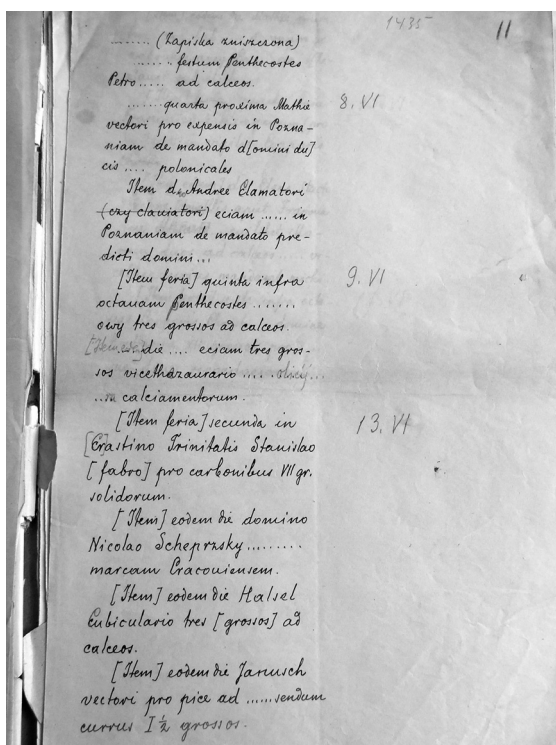 1435
11
........ (Zapiska zniszczona)
...... festum Penthecostes
Petro..... ad calceos.
....... quarta proxima Mathie 8. VI
vectori pro expensis in Pozna-
niam de mandato d[omini du]
cis .... polonicales
Item d. Andree Clamatori
(czy claviatori) eciam ...... in
Poznaniam de mandato pre-
dicti domini...
[Item feria] quinta infra 9. VI
octavam Penthecostes .......
owy tres grossos ad calceos.
die .... eciam tres gros-
sos vicethezaurario ....
calciamentorum.
[Item feria] secunda in 13. VI
[Cra]stino Trinitatis Stanislao
[fabro] pro carbonibus VII gr.
solidorum.
[Item] eodem die domino
Nicolao Scheprzsky.........
marcam Cracoviensem.
[Item] eodem die Halsel
Cubiculario tres [grossos] ad
calceos.
[Item] eodem die Janusch
vectori pro pice ad ......sendum
currus I ½ grossos.